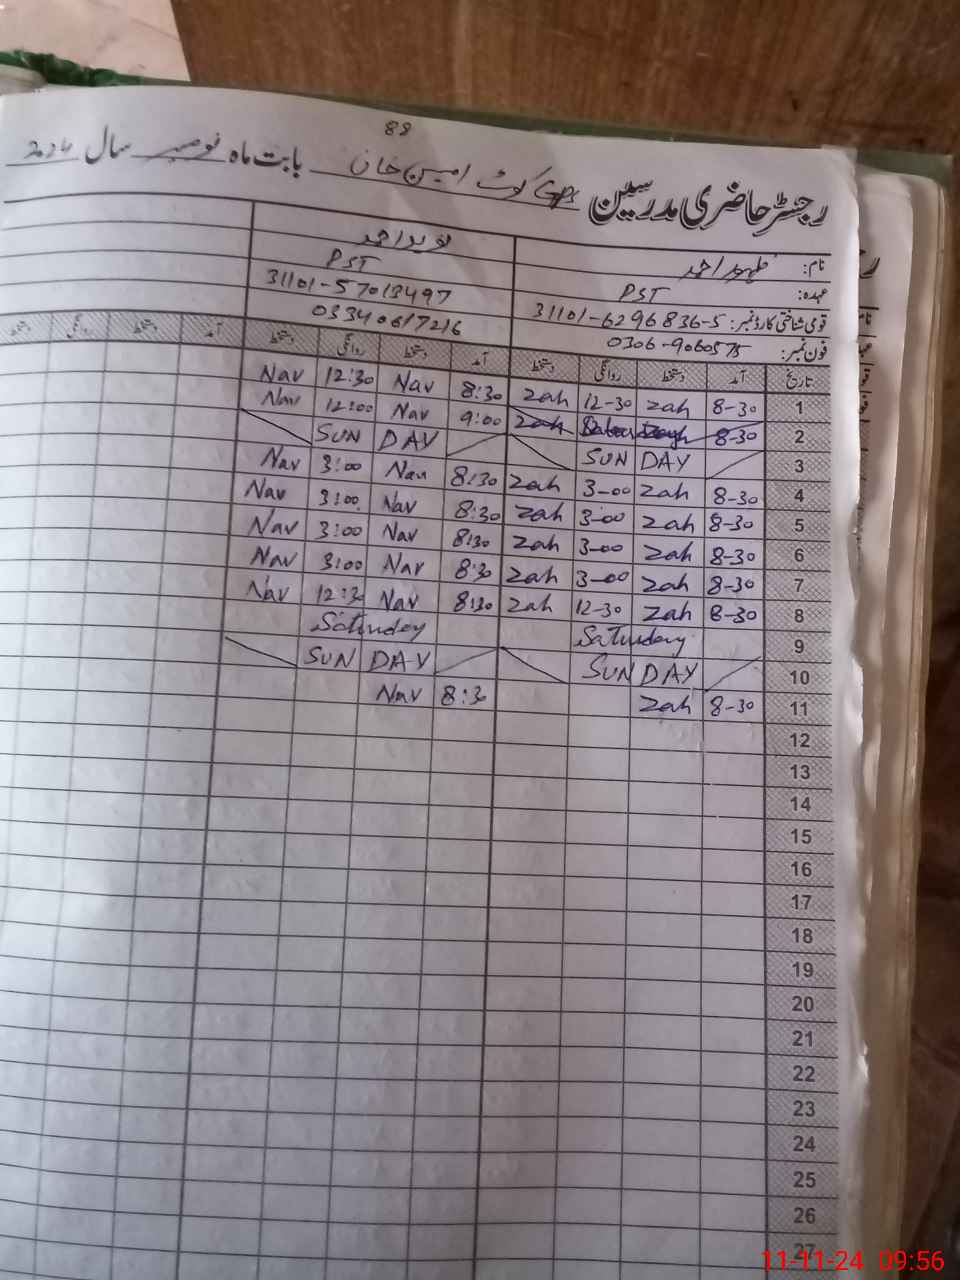 88
رجسٹر حاضری مدرسین GPS کوٹ امین خان بابت ماہ نومبر سال
نام: ظہور احمد نوید احمد
عہدہ: PST PST
قومی شناختی کارڈ نمبر: 31101-6296836-5 31101-57013497
فون نمبر: 0306-9060575 03340617216
تاریخ آمد دستخط روانگی دستخط آمد دستخط روانگی دستخط آمد دستخط روانگی دستخط
1 8-30 zah 12-30 zah 8:30 Nav 12:30 Nav
2 8-30 zah 9:00 Nav 12:00 Nav
3 SUN DAY SUN DAY
4 8-30 zah 3-00 zah 8:30 Nav 3:00 Nav
5 8-30 zah 3-00 zah 8:30 Nav 3:00 Nav
6 8-30 zah 3-00 zah 8:30 Nav 3:00 Nav
7 8-30 zah 3-00 zah 8:30 Nav 3:00 Nav
8 8-30 zah 12-30 zah 8:30 Nav 12:3 Nav
9 Saturday Saturday
10 SUN DAY SUN DAY
11 8-30 zah 8:30 Nav
12
13
14
15
16
17
18
19
20
21
22
23
24
25
26
27
11-11-24 09:56